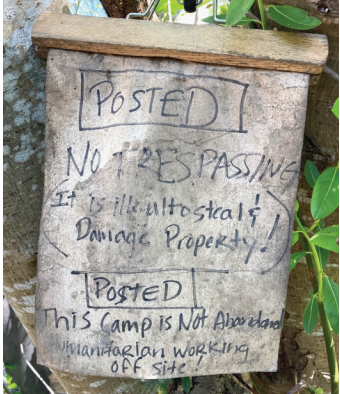 POSTED
NO TRESPASSING
It is illeulto steal &
Damage Property!
POSTED
This Camp is Not Abandoned
umanitarian working
OFF Site!